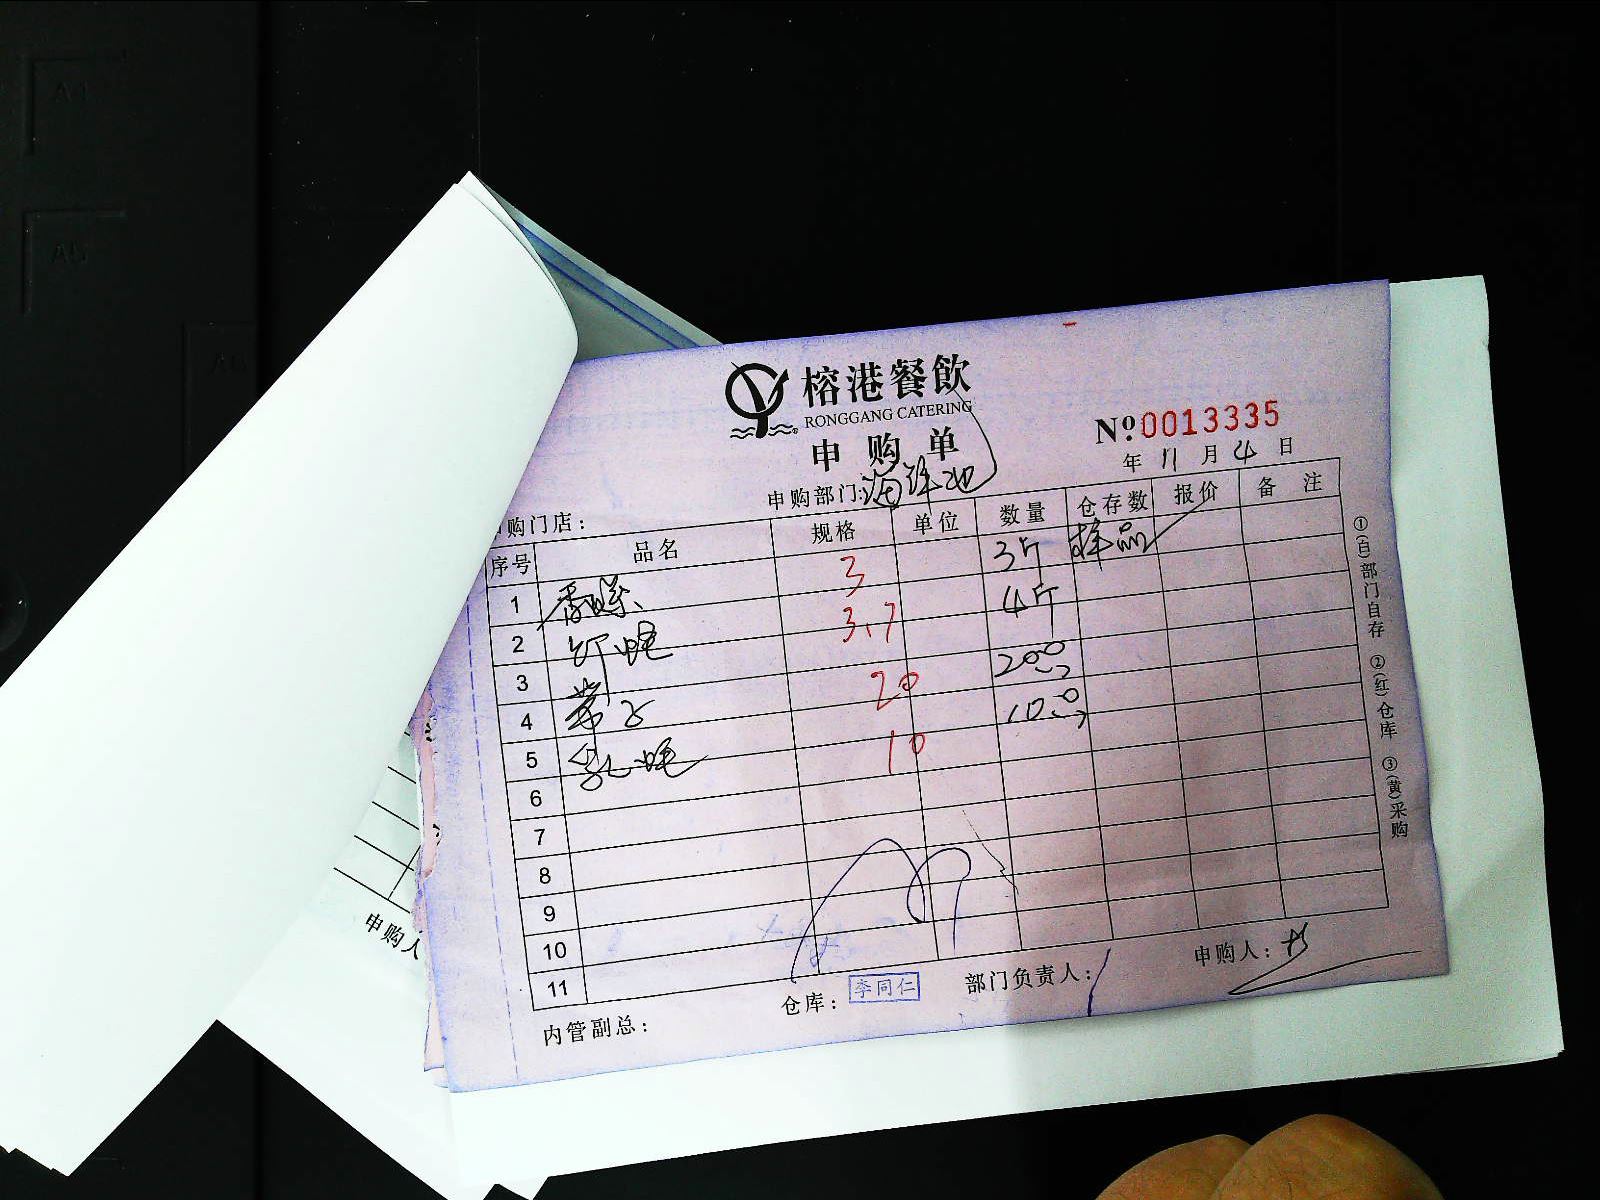 榕港餐飲
RONGGANG CATERING
申购单
№0013335
年 11 月 4 日
申购部门:海鲜池
购门店:
序号 品名 规格 单位 数量 仓存数 报价 备注
1 香螺 3 3斤 样品
2 虾蛄 3.7 4斤
3 带子 20 20
4 10 10
5
6
7
8
9
10
11
内管副总:
仓库: 李同仁
部门负责人:
申购人:
①(白)部门自存 ②(红)仓库 ③(黄)采购
申购人
A4
A5